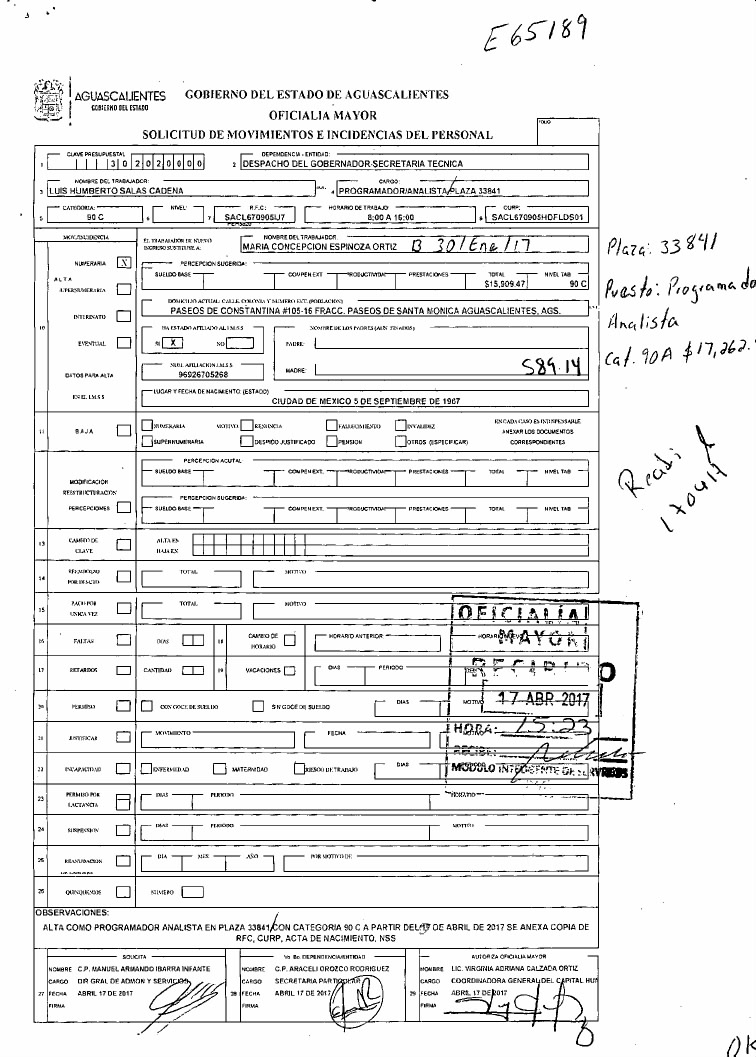 E65189
AGUASCALIENTES
GOBIERNO DEL ESTADO
GOBIERNO DEL ESTADO DE AGUASCALIENTES
OFICIALIA MAYOR
SOLICITUD DE MOVIMIENTOS E INCIDENCIAS DEL PERSONAL
FOLIO
CLAVE PRESUPUESTAL DEPENDENCIA - ENTIDAD:
1 3 0 2 0 2 0 0 0 0 2 DESPACHO DEL GOBERNADOR-SECRETARIA TECNICA
NOMBRE DEL TRABAJADOR: CARGO:
3 LUIS HUMBERTO SALAS CADENA 4 PROGRAMADOR/ANALISTA/PLAZA 33841
CATEGORIA: NIVEL: R.F.C: HORARIO DE TRABAJO CURP:
5 90 C 6 7 SACL670905IJ7 8:00 A 16:00 8 SACL670905HDFLDS01
MOV./INCIDENCIA EL TRABAJADOR DE NUEVO INGRESO SUSTITUYE A: NOMBRE DEL TRABAJADOR:
MARIA CONCEPCION ESPINOZA ORTIZ B 30/Ene/17
Plaza: 33841
NUMERARIA X PERCEPCION SUGERIDA:
ALTA SUELDO BASE COMPEN EXT PRODUCTIVIDAD PRESTACIONES TOTAL NIVEL TAB
SUPERNUMERARIA $15,909.47 90 C
Puesto: Programado
DOMICILIO ACTUAL: CALLE, COLONIA Y NUMERO EXT. (POBLACION)
INTERINATO PASEOS DE CONSTANTINA #105-16 FRACC. PASEOS DE SANTA MONICA AGUASCALIENTES, AGS.
Analista
10 HA ESTADO AFILIADO AL I.M.S.S NOMBRE DE LOS PADRES (AUN FINADOS)
EVENTUAL SI X NO PADRE:
Cat. 90A $17,262.
NUM. AFILIACION I.M.S.S MADRE: 589.14
DATOS PARA ALTA 96926705268
EN EL I.M.S.S LUGAR Y FECHA DE NACIMIENTO: (ESTADO)
CIUDAD DE MEXICO 5 DE SEPTIEMBRE DE 1967
11 BAJA NUMERARIA MOTIVO: RENUNCIA FALLECIMIENTO INVALIDEZ EN CADA CASO ES INDISPENSABLE
ANEXAR LOS DOCUMENTOS
SUPERNUMERARIA DESPIDO JUSTIFICADO PENSION OTROS (ESPECIFICAR) CORRESPONDIENTES
PERCEPCION ACUTAL
SUELDO BASE COMPEN EXT. PRODUCTIVIDAD PRESTACIONES TOTAL NIVEL TAB
MODIFICACION
REESTRUCTURACION PERCEPCION SUGERIDA:
PERCEPCIONES SUELDO BASE COMPEN EXT. PRODUCTIVIDAD PRESTACIONES TOTAL NIVEL TAB
170417
13 CAMBIO DE CLAVE ALTA EN
BAJA EN
14 REEMBOLSO POR DESCTO TOTAL MOTIVO
15 PAGO POR UNICA VEZ TOTAL MOTIVO
16 FALTAS DIAS 18 CAMBIO DE HORARIO HORARIO ANTERIOR
17 RETARDOS CANTIDAD 19 VACACIONES DIAS PERIODO
OFICIALIA
MAYOR
RECIBIDO
17 ABR 2017
HORA: 15:23
RECIBE:
MODULO INTELIGENTE DE SERVICIOS
20 PERMISO CON GOCE DE SUELDO SIN GOCE DE SUELDO DIAS MOTIVO
21 JUSTIFICAR MOVIMIENTO FECHA MOTIVO
22 INCAPACIDAD ENFERMEDAD MATERNIDAD RIESGO DE TRABAJO DIAS
23 PERMISO POR LACTANCIA DIAS PERIODO HORARIO
24 SUSPENSION DIAS PERIODO MOTIVO
25 REANUDACION DIA MES AÑO POR MOTIVO DE
26 QUINQUENIOS NUMERO
OBSERVACIONES:
ALTA COMO PROGRAMADOR ANALISTA EN PLAZA 33841/CON CATEGORIA 90 C A PARTIR DEL 17 DE ABRIL DE 2017 SE ANEXA COPIA DE
RFC, CURP, ACTA DE NACIMIENTO, NSS
SOLICITA Vo Bo. DEPENDENCIA/ENTIDAD AUTORIZA OFICIALIA MAYOR
NOMBRE C.P. MANUEL ARMANDO IBARRA INFANTE NOMBRE C.P. ARACELI OROZCO RODRIGUEZ NOMBRE LIC. VIRGINIA ADRIANA CALZADA ORTIZ
CARGO DIR GRAL DE ADMON Y SERVICIOS CARGO SECRETARIA PARTICULAR CARGO COORDINADORA GENERAL DEL CAPITAL HUM
27 FECHA ABRIL 17 DE 2017 28 FECHA ABRIL 17 DE 2017 29 FECHA ABRIL 17 DE 2017
FIRMA FIRMA FIRMA
OK